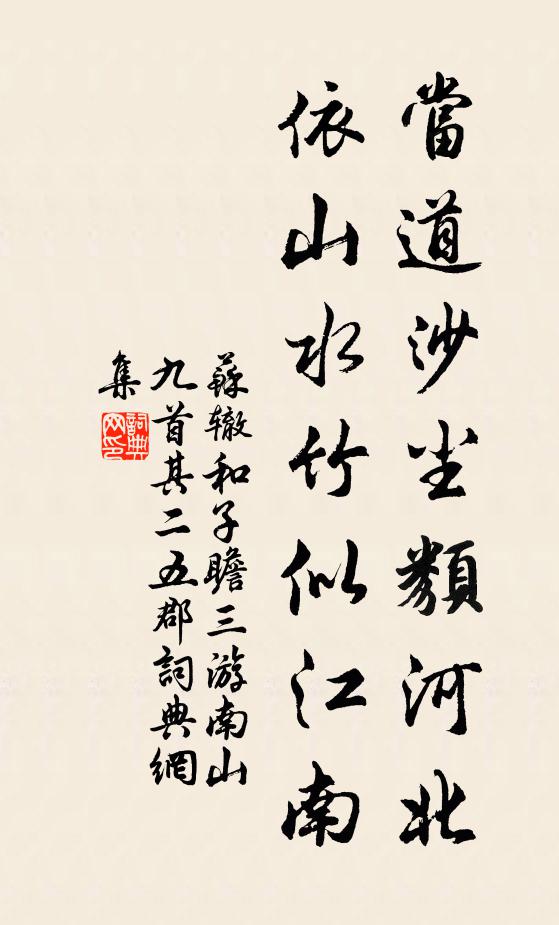 當道沙尘類河北
依山水竹似江南
蘇辙和子瞻三游南山
九首其二五郡詞典網
集
詞典
网印